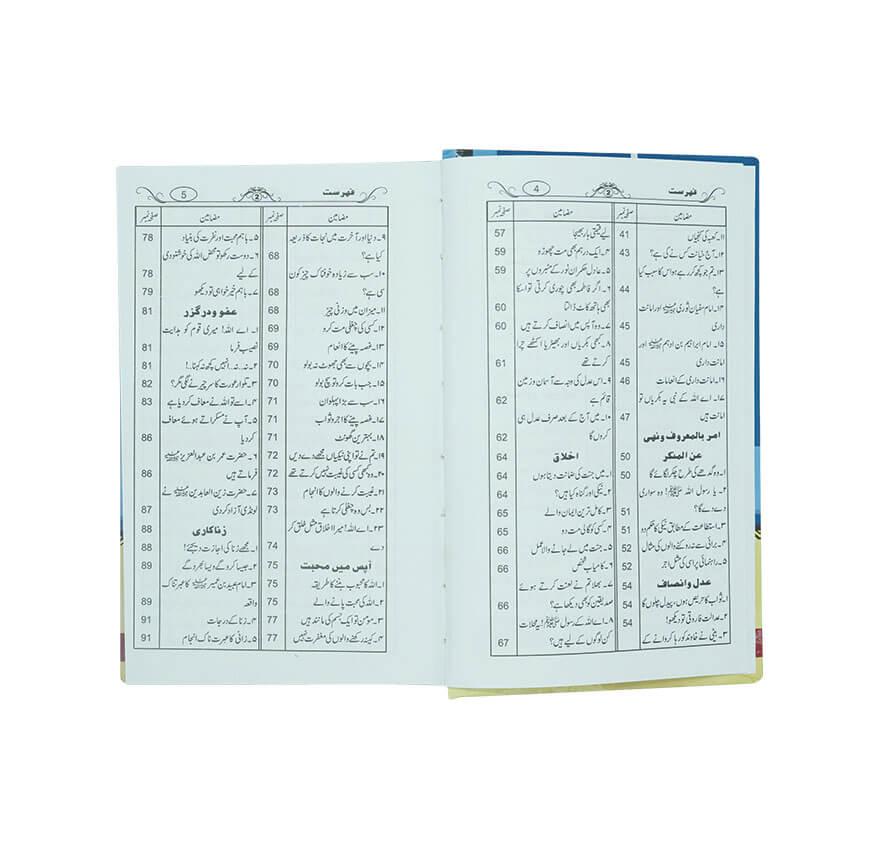 فہرست
4
مضامین صفحہ نمبر
۱۱۔ کعبہ کی کنجیاں 41
۱۲۔ آج خیانت کس نے کی ہے؟ 43
۱۳۔ تم جو کچھ کر رہے ہو اس کا سبب کیا
ہے؟ 44
۱۴۔ امام سفیان ثوری رحمۃ اللہ علیہ اور امانت
داری 45
۱۵۔ امام ابراہیم بن ادہم رحمۃ اللہ علیہ اور
امانت داری 45
۱۶۔ امانت داری کے انعامات 46
۱۷۔ اے اللہ کے نبی یہ بکریاں تو
امانت ہیں 47
امر بالمعروف و نہی
عن المنکر 50
۱۔ وہ گدھے کی طرح چکر لگائے گا 50
۲۔ یا رسول اللہ ﷺ! وہ سواری
دے دے گا؟ 51
۳۔ استطاعت کے مطابق نیکی کا حکم دو 51
۴۔ برائی سے نہ روکنے والوں کی مثال 52
۵۔ راہنمائی پر اسی کی مثل اجر 52
عدل و انصاف 54
۱۔ ثواب کا حریص ہوں، پیدل چلوں گا 54
۲۔ عدالت فاروقی تو دیکھو! 54
۳۔ بیٹی نے خاوند کو رہا کروانے کے
مضامین صفحہ نمبر
لیے قیمتی ہار بھیجا 57
۴۔ ایک درہم بھی مت چھوڑو 59
۵۔ عادل حکمران نور کے منبروں پر 59
۶۔ اگر فاطمہ بھی چوری کرتی تو اسکا
بھی ہاتھ کاٹ ڈالتا 60
۷۔ وہ آپس میں انصاف کرتے ہیں 60
۸۔ کبھی بکریاں اور بھیڑیا اکٹھے چرا
کرتے تھے 61
۹۔ اس عدل کی وجہ سے آسمان و زمین
قائم ہے 62
۱۰۔ میں آج کے بعد صرف عدل ہی
کروں گا 62
اخلاق 64
۱۔ میں جنت کی ضمانت دیتا ہوں 64
۲۔ نیکی اور گناہ کیا ہیں؟ 64
۳۔ کامل ترین ایمان والے 65
۴۔ کسی کو گالی مت دو 65
۵۔ جنت میں لے جانے والا عمل 66
۶۔ کامیاب شخص 66
۷۔ بھلا تم نے لعنت کرتے ہوئے
صدیقین کو بھی دیکھا ہے؟ 66
۸۔ اے اللہ کے رسول ﷺ! یہ محلات
کن لوگوں کے لیے ہیں؟ 67
فہرست
5
مضامین صفحہ نمبر
۹۔ دنیا اور آخرت میں نجات کا ذریعہ
کیا ہے؟ 68
۱۰۔ سب سے زیادہ خوفناک چیز کون
سی ہے؟ 68
۱۱۔ میزان میں وزنی چیز 68
۱۲۔ کسی کی چغلی مت کرو 69
۱۳۔ غصہ پینے کا انعام 69
۱۴۔ بچوں سے بھی جھوٹ نہ بولو 70
۱۵۔ جب بات کرو تو سچ بولو 70
۱۶۔ سب سے بڑا پہلوان 71
۱۷۔ غصہ پینے کا اجر و ثواب 71
۱۸۔ بہترین گھونٹ 71
۱۹۔ تم نے تو اپنی نیکیاں مجھے دے دیں 72
۲۰۔ وہ کبھی کسی کی غیبت نہیں کرتے تھے 72
۲۱۔ غیبت کرنے والوں کا انجام 73
۲۲۔ بس وہ چغلی کرتا ہے 73
۲۳۔ اے اللہ! میرا اخلاق مثل خلق کر
دے 74
آپس میں محبت 75
۱۔ اللہ کا محبوب بننے کا طریقہ 75
۲۔ اللہ کی محبت پانے والے 75
۳۔ مومن تو ایک جسم کی مانند ہیں 77
۴۔ کینہ رکھنے والوں کی مغفرت نہیں 77
مضامین صفحہ نمبر
۵۔ باہم محبت اور نفرت کی بنیاد 78
۶۔ دوست رکھو تو محض اللہ کی خوشنودی
کے لیے 78
۷۔ باہم خیر خواہی تو دیکھو 79
عفو و درگزر 81
۱۔ اے اللہ! میری قوم کو ہدایت
نصیب فرما 81
۲۔ نہ..نہ..انہیں کچھ نہ کہنا..! 81
۳۔ مکوار عورت کا سر چیرنے لگی مگر؟ 82
۴۔ اسے تو اللہ نے معاف کر دیا ہے 83
۵۔ آپ نے مسکراتے ہوئے معاف
کر دیا 86
۶۔ حضرت عمر بن عبدالعزیز رحمۃ اللہ علیہ
فرماتے ہیں 86
۷۔ حضرت زین العابدین رحمۃ اللہ علیہ نے
لونڈی آزاد کر دی 87
زناکاری 88
۱۔ مجھے زنا کی اجازت دیجئے! 88
۲۔ جیسا کرو گے ویسا بھرو گے 89
۳۔ امام عبید بن عمیر رحمۃ اللہ علیہ کا عبرتناک
واقعہ 89
۴۔ زنا کے درجات 91
۵۔ زانی کا عبرت ناک انجام 91